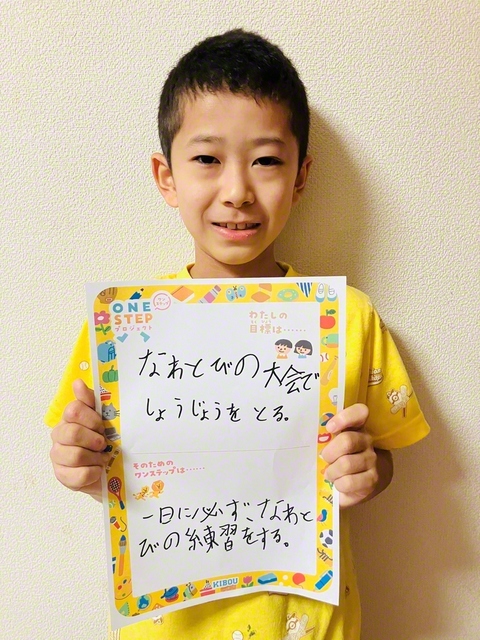 ONE
STEP
プロジェクト
わたしの
目標は……
なわとびの大会で
しょうじょうをとる。
そのための
ワンステップは……
一日に必ず、なわと
びの練習をする。
KIBOU